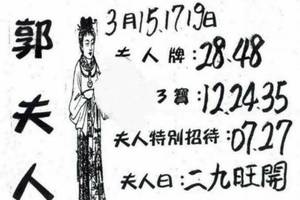 郭夫人
3月15.17.19日
夫人牌:28.48
3寶:12.24.35
夫人特別招待:07.27
夫人日:二九旺開